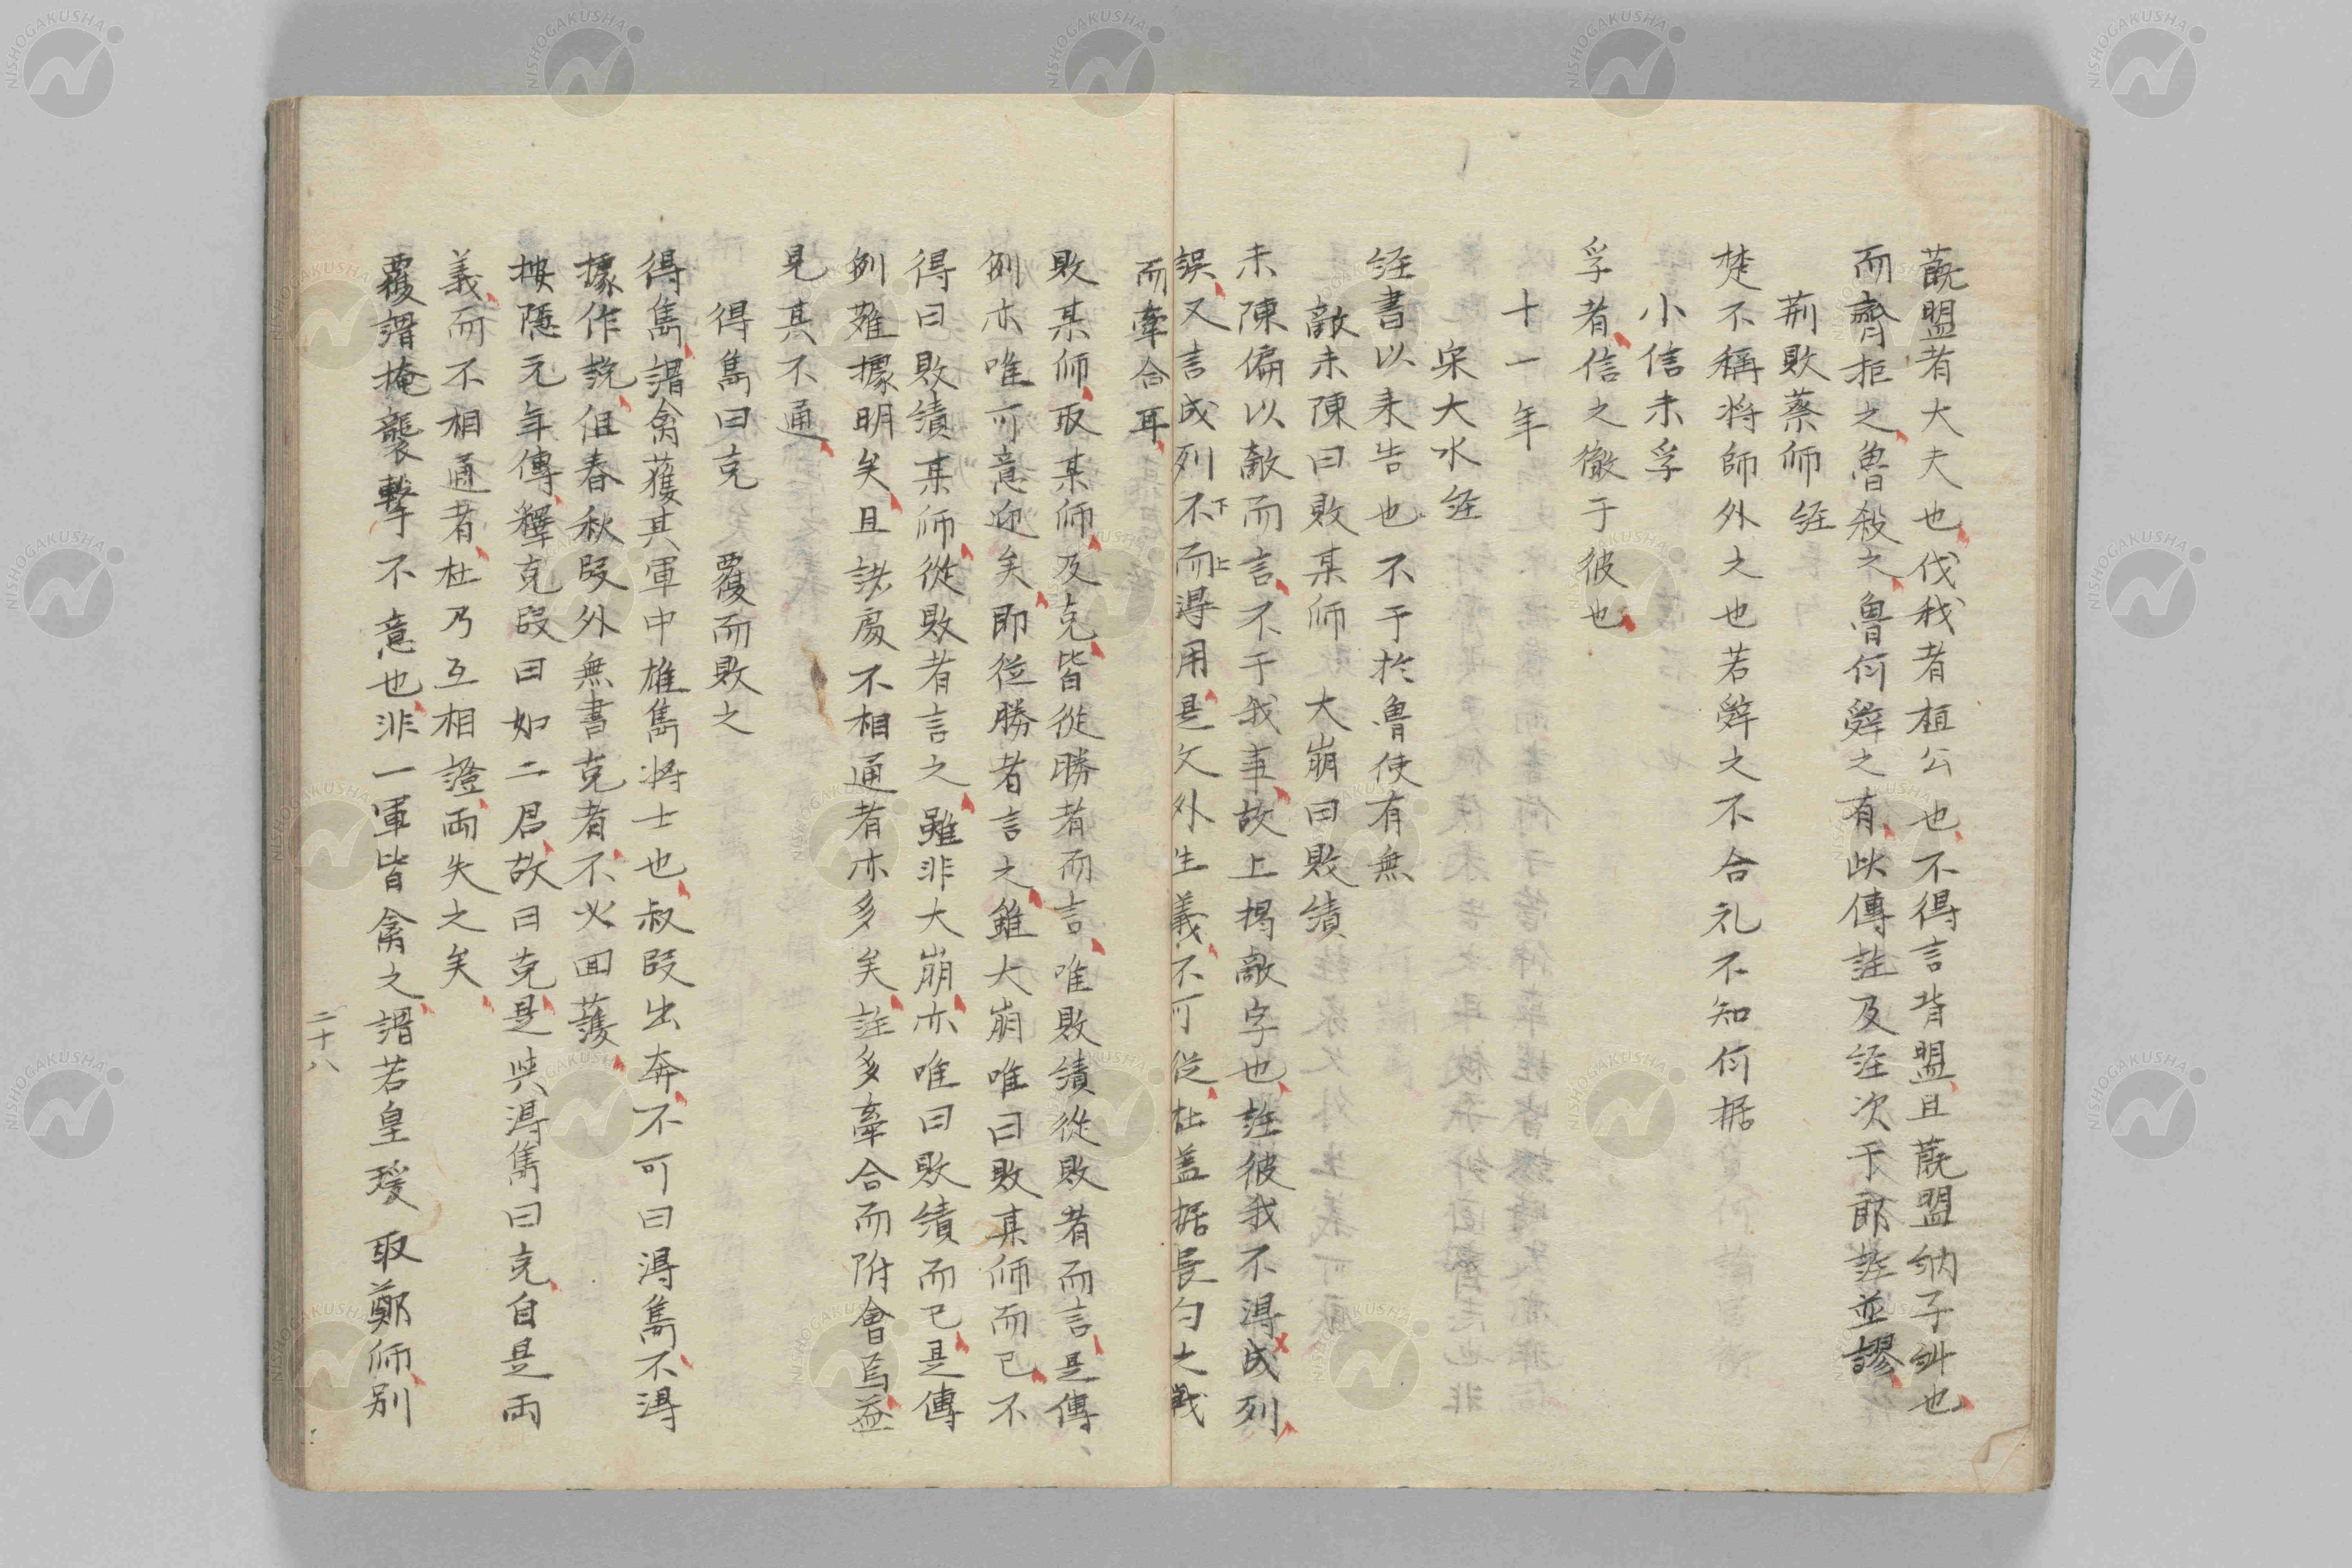 蔇盟者大夫也伐我者桓公也不得言背盟且蔇盟納子糾也
而齊拒之魯殺之魯何辭之有此傳註及經次于郎註並謬
荊敗蔡師 経
楚不稱将師外之也若辭之不合礼不知何据
小信未孚
孚者信之徹于彼也
十一年
宋大水 経
経書以来告也不于於魯使有無
敵未陳曰敗某師 大崩曰敗績
未陳偏以敵而言不于我事故上掲敵字也註彼我不得成列
誤又言成列不下而上得用是文外生義不可従杜盖据長勺之戦
而牽合耳
敗某師取某師及克皆従勝者而言唯敗績従敗者而言是傳
例亦唯可意迎矣即従勝者言之雖大崩唯曰敗某師而已不
得曰敗績某師従敗者言之雖非大崩亦唯曰敗績而已是傳
例難據明矣且諸處不相通者亦多矣註多牽合而附會焉益
見其不通
得雋曰克 覆而敗之
得雋謂禽獲其軍中雄雋将士也叔段出奔不可曰得雋不得
據作説但春秋段外無書克者不必回護
按隠元年傳釋克段曰如二君故曰克是與得雋曰克自是両
義而不相通者杜乃互相證両失之矣
覆謂掩襲撃不意也非一軍皆禽之謂若皇瑗取鄭師別
二十八
NISHOGAKUSHA